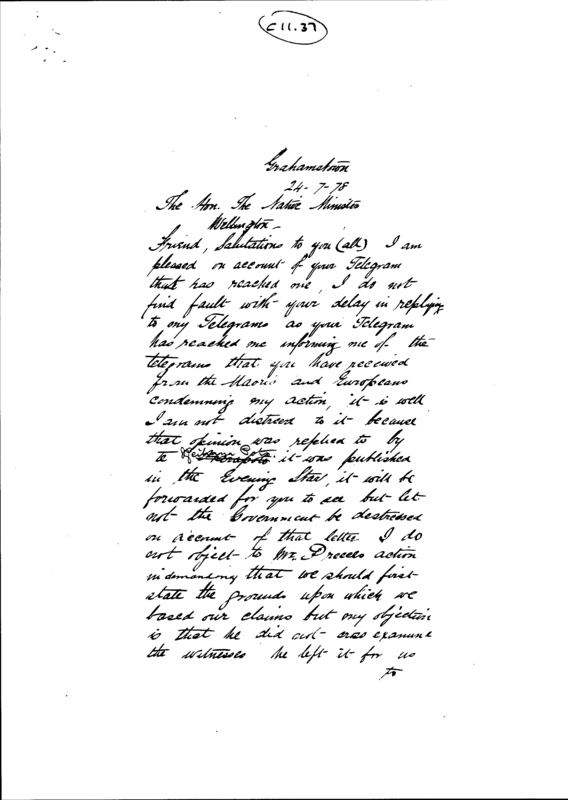 C11.37
Grahamstown
24-7-78
The Hon. The Native Minister
Wellington-
Friend, Salutations to you (all) I am
pleased on account of your Telegram
that has reached me, I do not
find fault with your delay in replying
to my Telegrams as your Telegram
has reached me informing me of the
telegrams that you have received
from the Maoris and Europeans
condemning my action, it is well
I am not distresed to it because
that opinion was replied to by
te it was published
in the Evening Star, it will be
forwarded for you to see but let
not the Government be destressed
on account of that letter I do
not object to Mr. Preeces action
in demanding that we should first
state the grounds upon which we
based our claims but my objection
is that he did not cross examine
the witnesses he left it for us
to